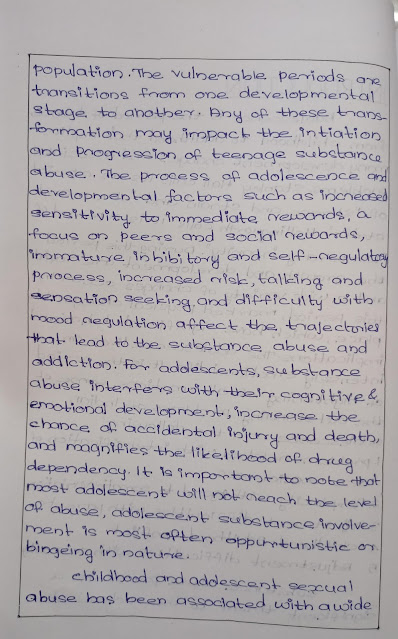 population. The vulnerable periods are
transitions from one developmental
stage to another. Any of these trans-
formation may impact the intiation
and progression of teenage substance
abuse. The process of adolescence and
developmental factors such as increased
sensitivity to immediate rewards, a
focus on peers and social rewards,
immature, inhibitory and self-regulatory
process, increased risk, talking and
sensation seeking and difficulty with
mood regulation affect the trajectories
that lead to the substance abuse and
addiction. For adolescents, substance
abuse interfers with their cognitive &
emotional development, increase the
chance of accidental injury and death,
and magnifies the likelihood of drug
dependency. It is important to note that
most adolescent will not reach the level
of abuse, adolescent substance involve-
ment is most often oppurtunistic or
bingeing in nature.
childhood and adolescent sexual
abuse has been associated with a wide